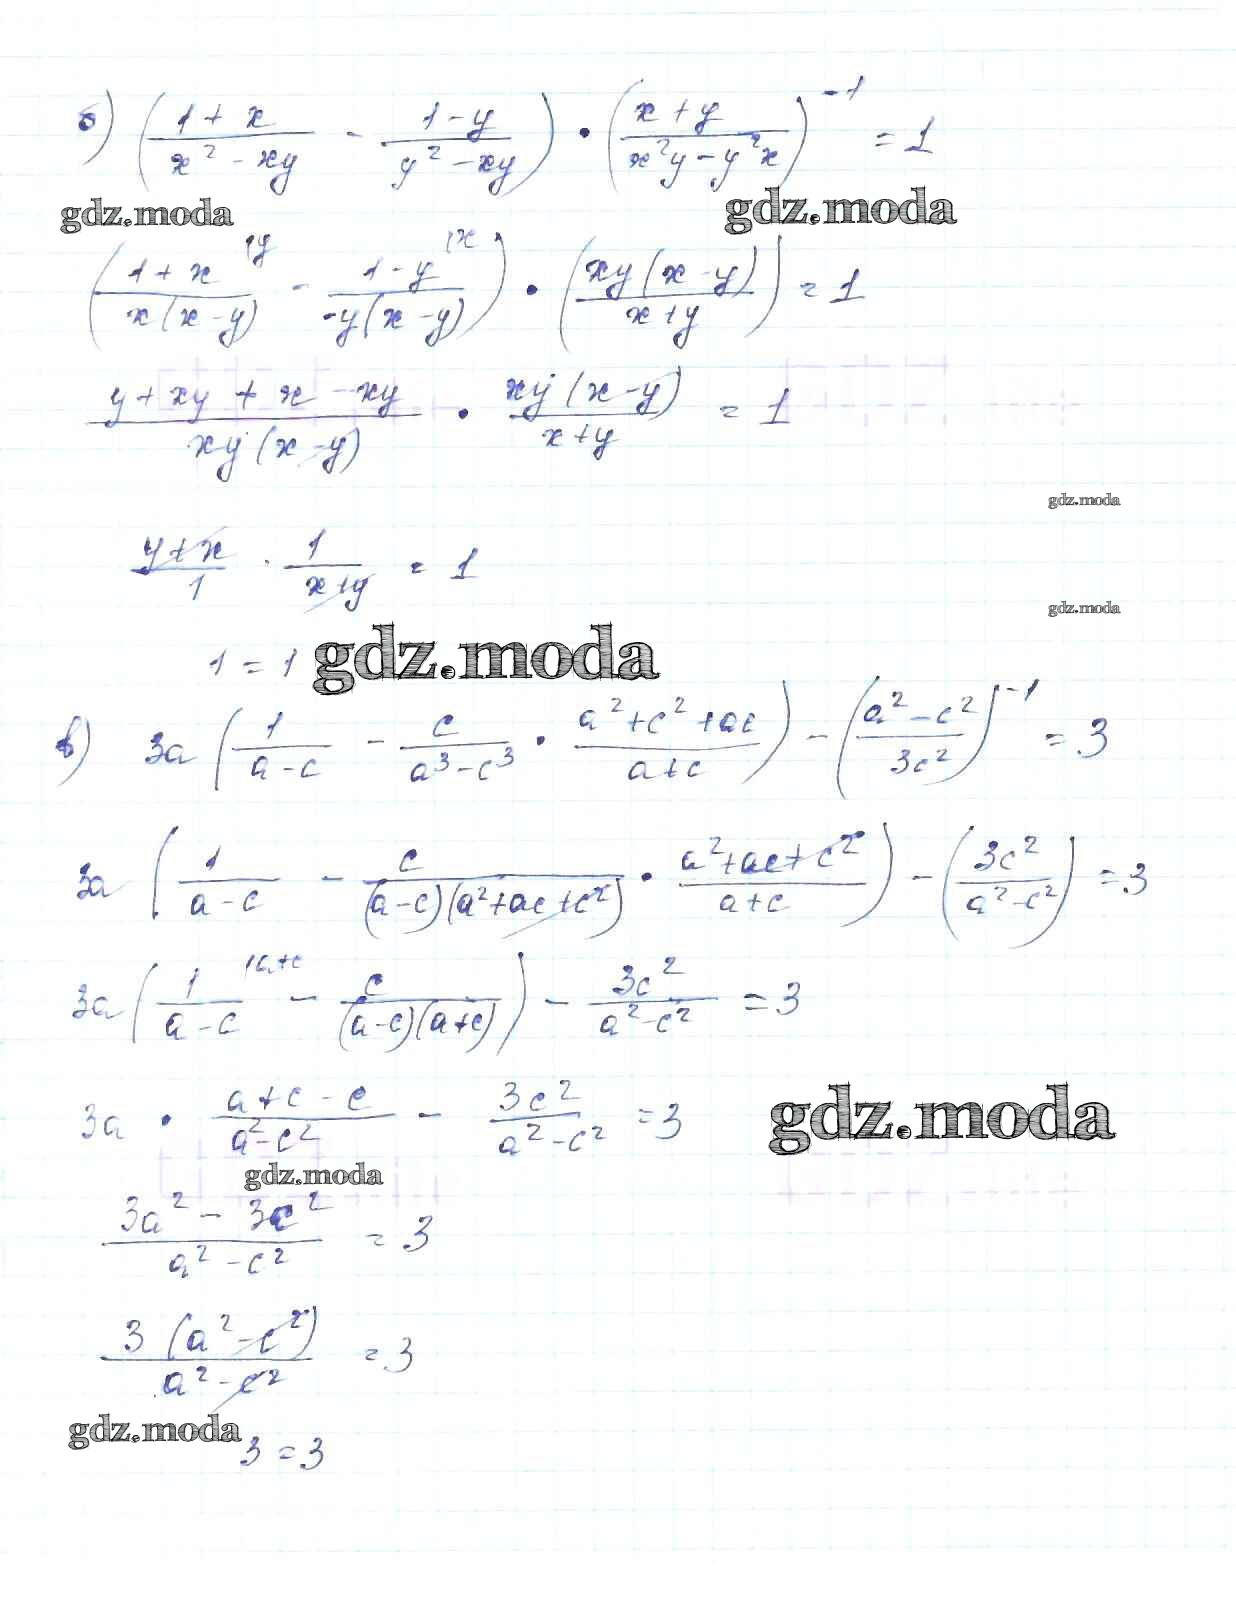 б) ((1+x)/(x²-xy) - (1-y)/(y²-xy)) • ((x+y)/(x²y-y²x))⁻¹ = 1
gdz.moda gdz.moda
((1+x)/(x(x-y)) |y - (1-y)/(-y(x-y)) |x) • (xy(x-y)/(x+y)) = 1
(y+xy+x-xy)/(xy(x-y)) • xy(x-y)/(x+y) = 1
gdz.moda
(y+x)/1 · 1/(x+y) = 1
gdz.moda
1 = 1 gdz.moda
в) 3a (1/(a-c) - c/(a³-c³) • (a²+c²+ac)/(a+c)) - ((a²-c²)/(3c²))⁻¹ = 3
3a (1/(a-c) - c/((a-c)(a²+ac+c²)) • (a²+ac+c²)/(a+c)) - (3c²/(a²-c²)) = 3
3a (1/(a-c) |a+c - c/((a-c)(a+c))) - 3c²/(a²-c²) = 3
3a • (a+c-c)/(a²-c²) - 3c²/(a²-c²) = 3 gdz.moda
gdz.moda
(3a²-3c²)/(a²-c²) = 3
3(a²-c²)/(a²-c²) = 3
gdz.moda
3 = 3